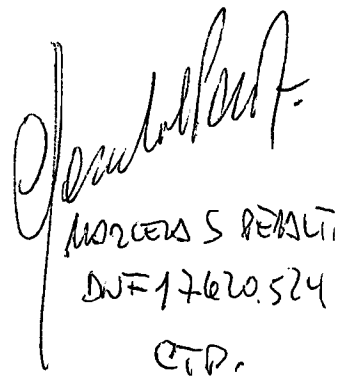 MARCELA S PERALTI
DNI 17620.524
CTP.